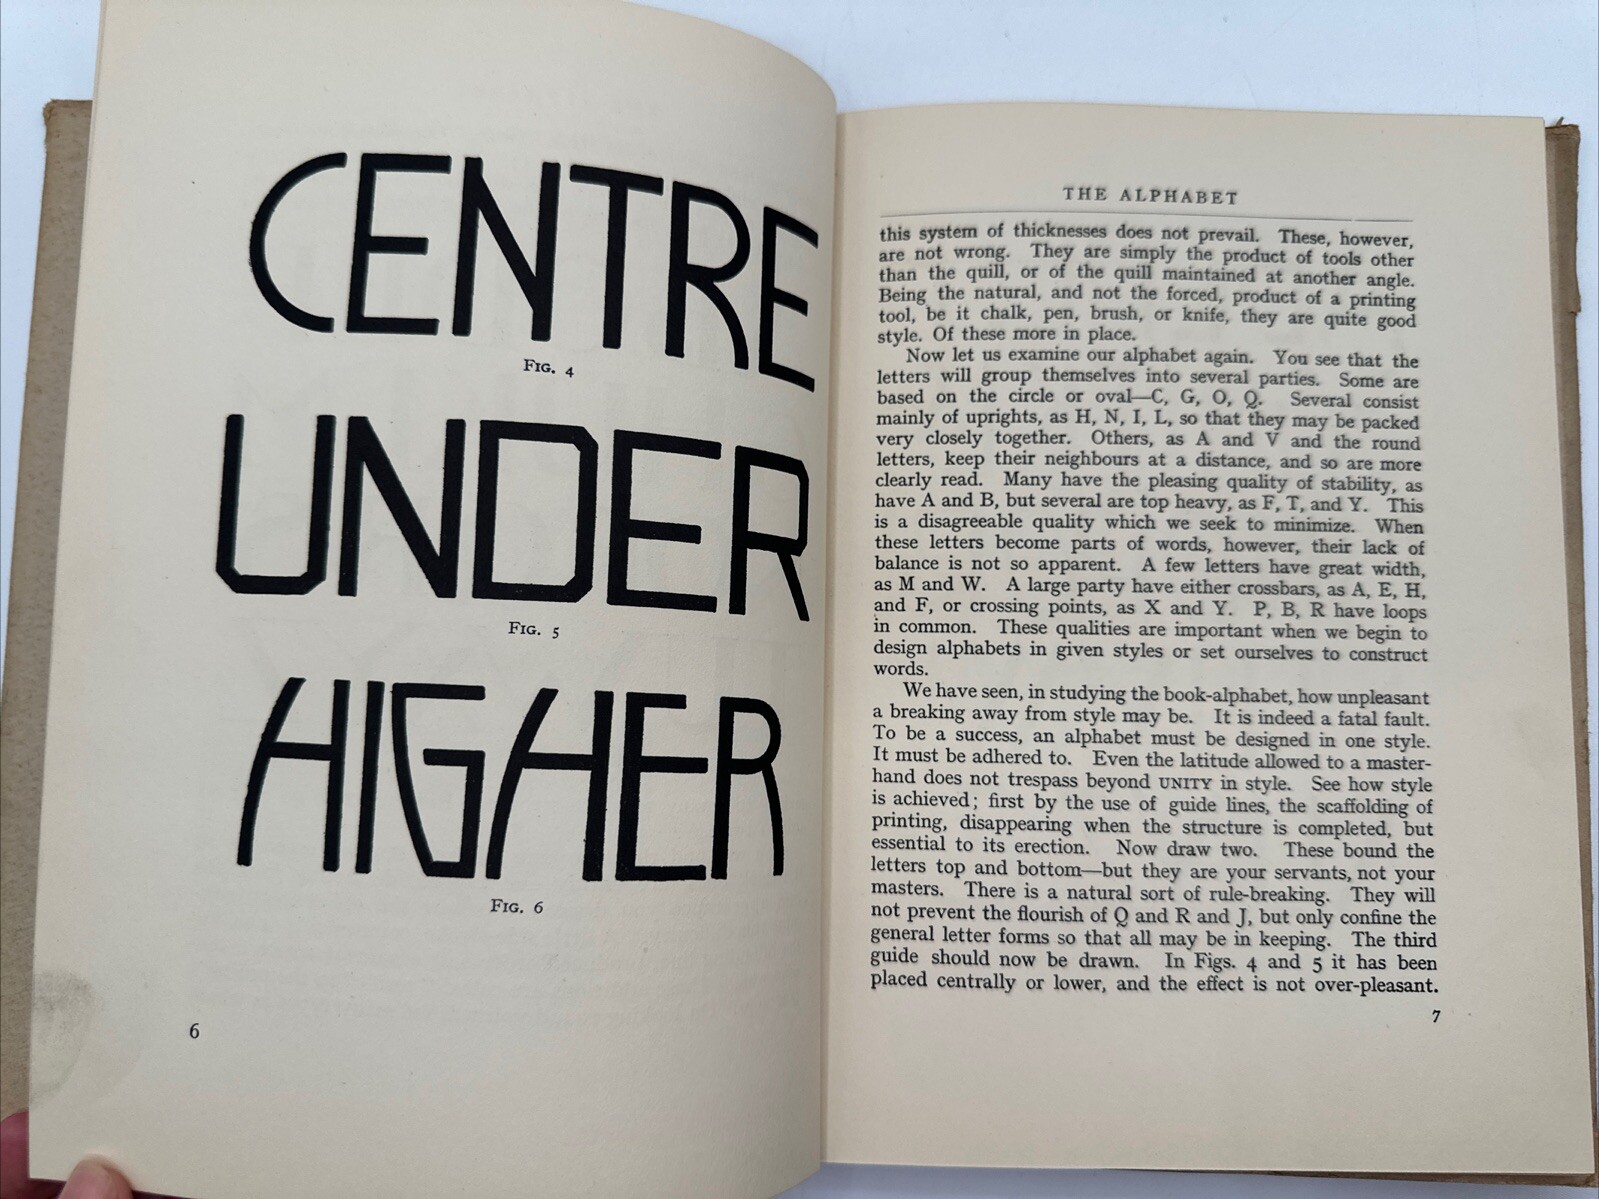 CENTRE
FIG. 4
UNDER
FIG. 5
HIGHER
FIG. 6
6
THE ALPHABET
this system of thicknesses does not prevail. These, however,
are not wrong. They are simply the product of tools other
than the quill, or of the quill maintained at another angle.
Being the natural, and not the forced, product of a printing
tool, be it chalk, pen, brush, or knife, they are quite good
style. Of these more in place.
Now let us examine our alphabet again. You see that the
letters will group themselves into several parties. Some are
based on the circle or oval—C, G, O, Q. Several consist
mainly of uprights, as H, N, I, L, so that they may be packed
very closely together. Others, as A and V and the round
letters, keep their neighbours at a distance, and so are more
clearly read. Many have the pleasing quality of stability, as
have A and B, but several are top heavy, as F, T, and Y. This
is a disagreeable quality which we seek to minimize. When
these letters become parts of words, however, their lack of
balance is not so apparent. A few letters have great width,
as M and W. A large party have either crossbars, as A, E, H,
and F, or crossing points, as X and Y. P, B, R have loops
in common. These qualities are important when we begin to
design alphabets in given styles or set ourselves to construct
words.
We have seen, in studying the book-alphabet, how unpleasant
a breaking away from style may be. It is indeed a fatal fault.
To be a success, an alphabet must be designed in one style.
It must be adhered to. Even the latitude allowed to a master-
hand does not trespass beyond UNITY in style. See how style
is achieved; first by the use of guide lines, the scaffolding of
printing, disappearing when the structure is completed, but
essential to its erection. Now draw two. These bound the
letters top and bottom—but they are your servants, not your
masters. There is a natural sort of rule-breaking. They will
not prevent the flourish of Q and R and J, but only confine the
general letter forms so that all may be in keeping. The third
guide should now be drawn. In Figs. 4 and 5 it has been
placed centrally or lower, and the effect is not over-pleasant.
7